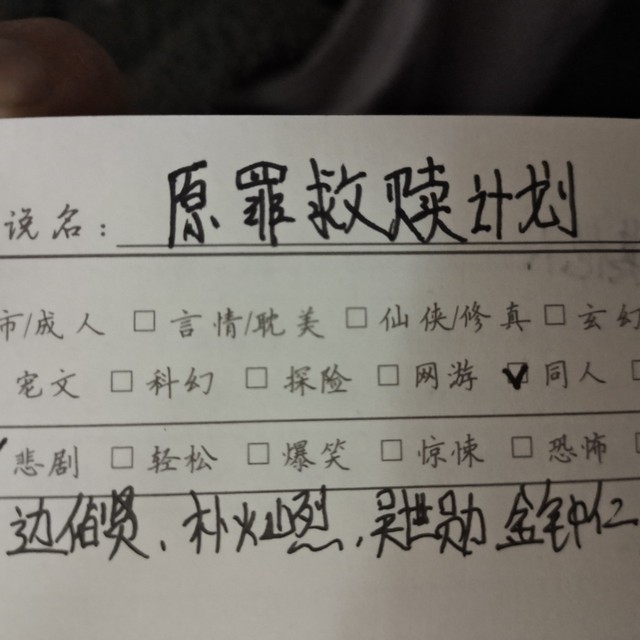 说名： 原罪救赎计划
市/成人 □ 言情/耽美 □ 仙侠/修真 □ 玄幻
宠文 □ 科幻 □ 探险 □ 网游 ✓ 同人 □
✓ 悲剧 □ 轻松 □ 爆笑 □ 惊悚 □ 恐怖 □
边伯贤、朴灿烈、吴世勋 金钟仁